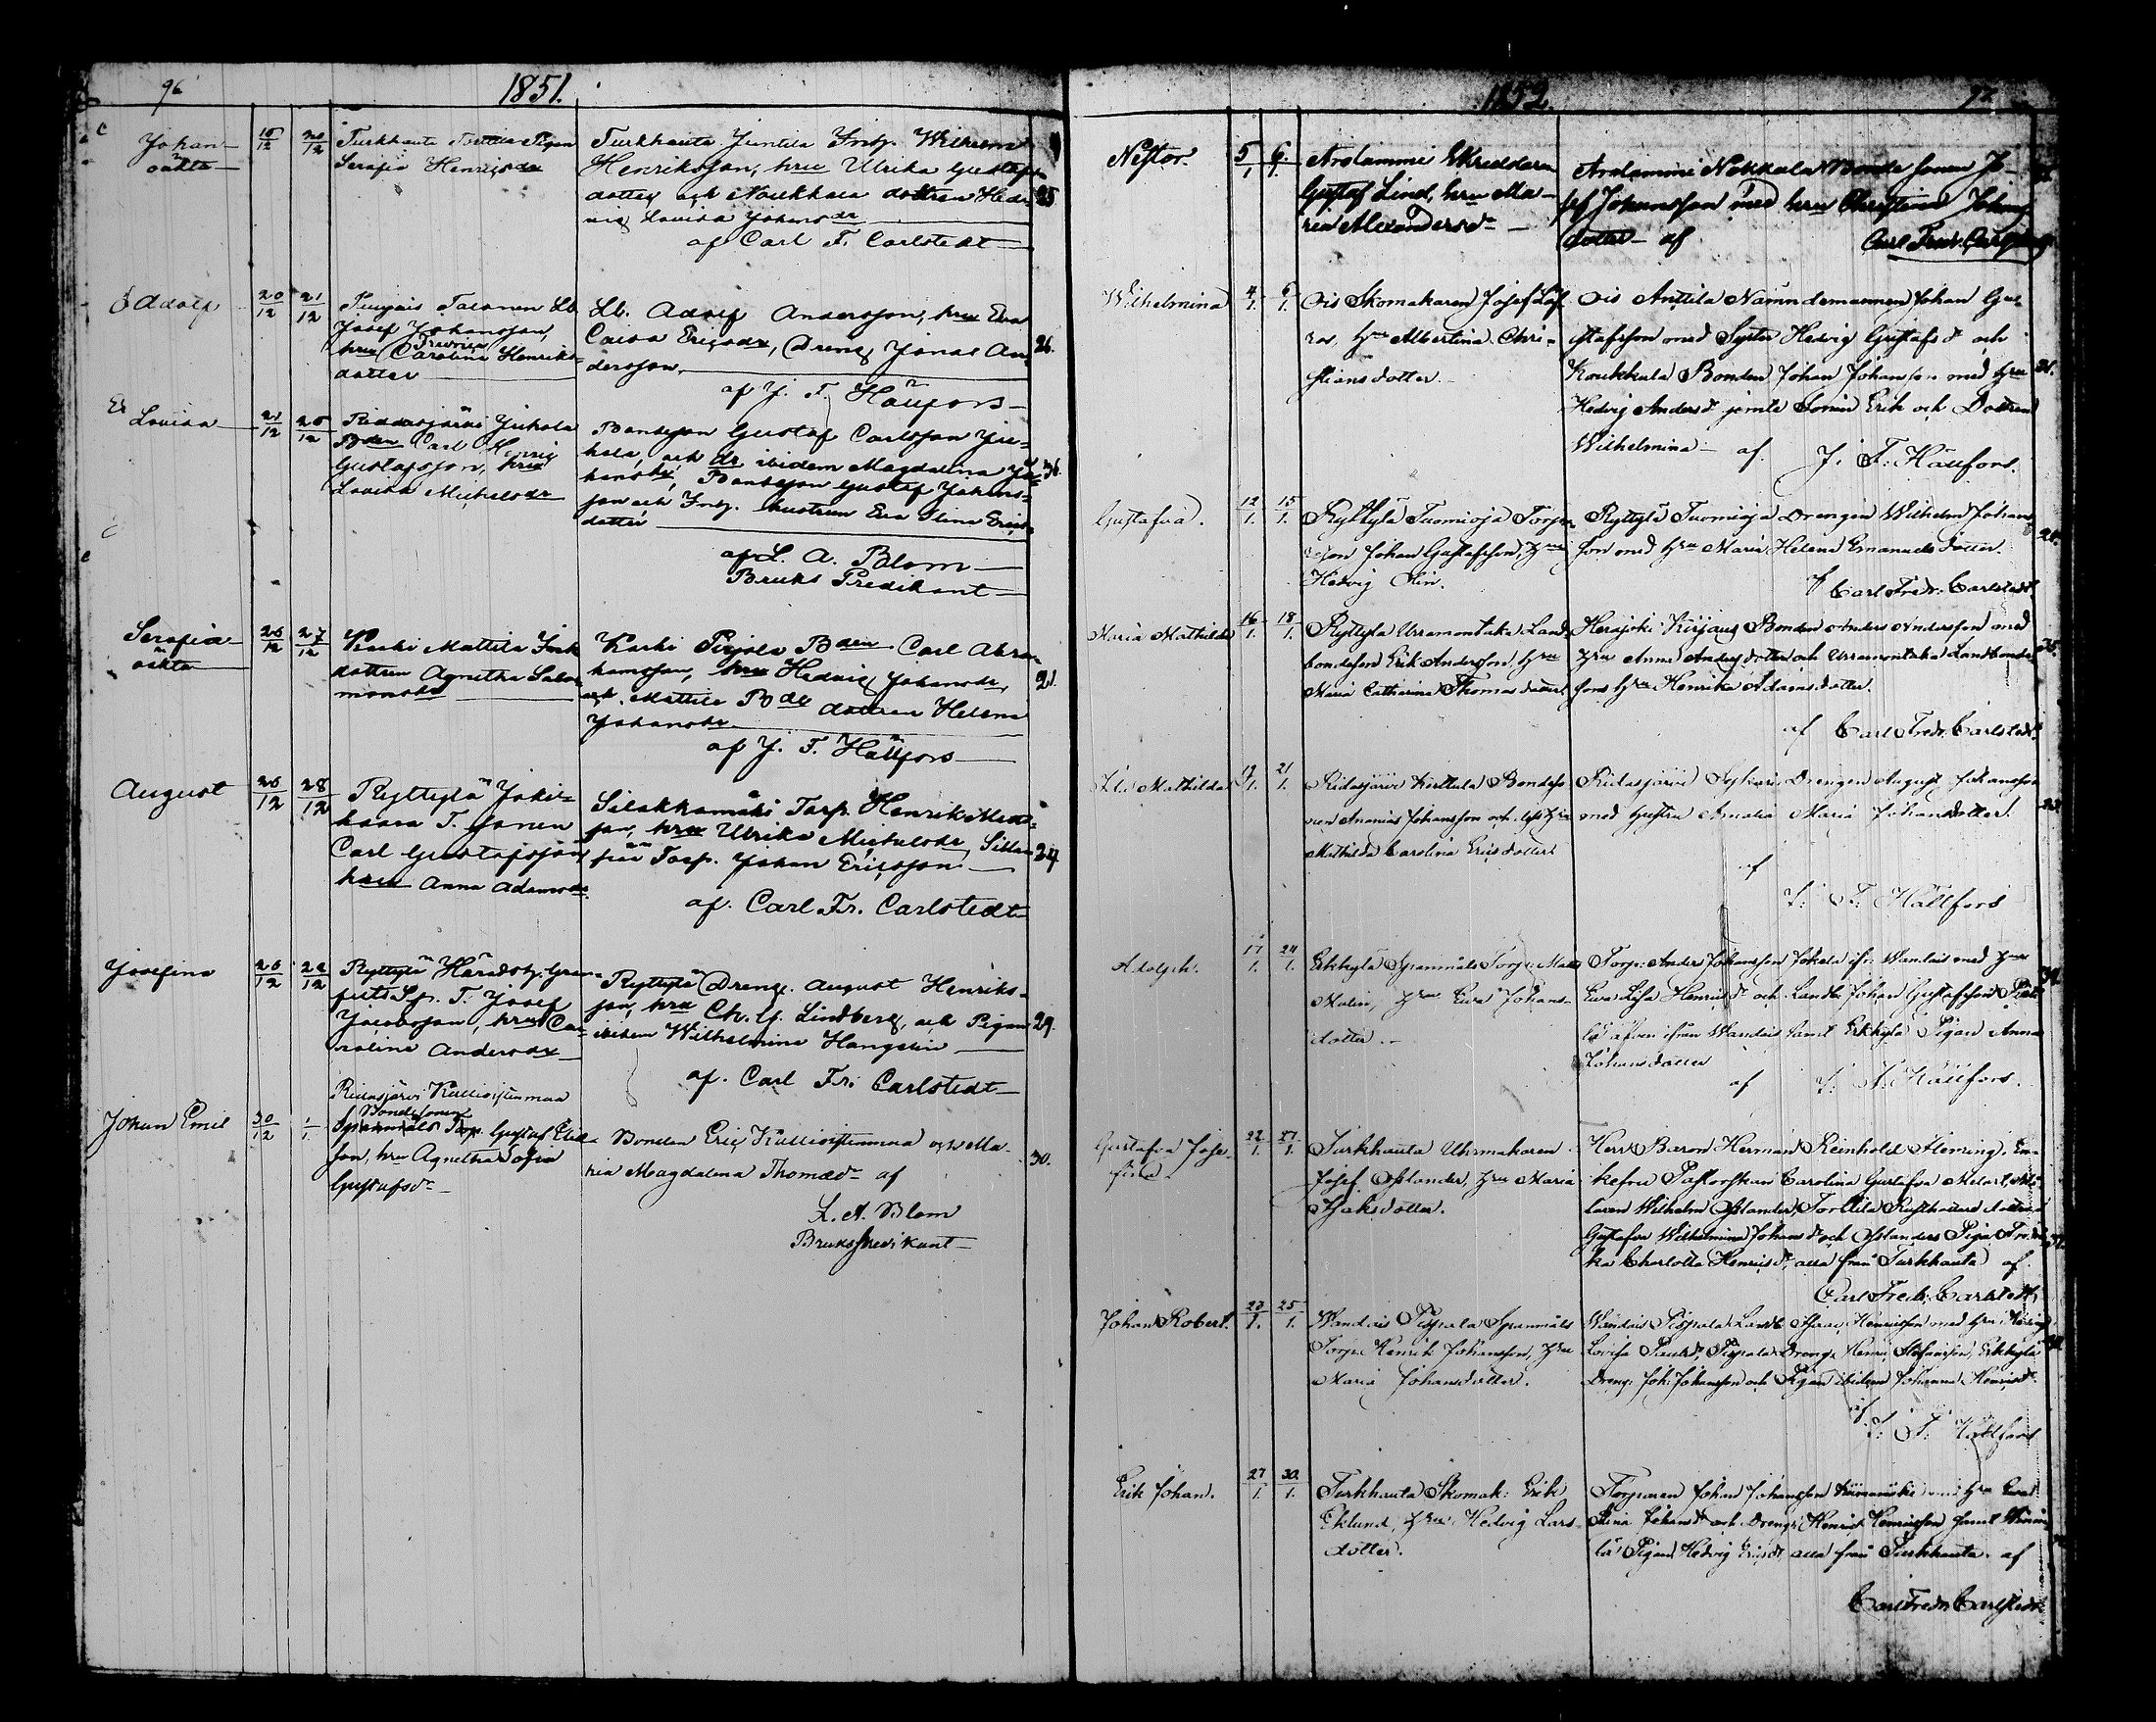 96
1851.
Johan
oäkta
15/12 20/12
Turkhauta Pigan
Serafia Henrigsdr
Turkhauta Juntila Inh. Wilhelm
Henriksson, hru Ulrika Gustafs
dotter och Noukkala dottren Hed
vig Lovisa Johansdr
af Carl F. Carlstedt
25
Adolf
20/12 21/12
Josef Johansson,
Fredrica
hru Carolina Henriks
dotter
Lb. Adolf Andersson, hru Eva
Caisa Ericsdr, Dreng Jonas An
dersson
af J. F. Hällfors
26.
Lovisa
21/12 25/12
Ridasjärvi Jukola
Bden Carl Henric
Gustafsson, hru
Lovisa Michelsdr
Bondeson Gustaf Carlsson Ju
kola, och dr ibidem Magdalena Jo
hansdr, Bondeson Gustaf Johans
son och Inh. hustrun Eva Stina Erics
dotter
af L. A. Blom
Bruks Predikant
36.
Serafia
oäkta
25/12 27/12
Karhi Mattila Inh
dottren Agnetha Salo
monsdr
Karhi Pirjola Bden Carl Abra
hamsson, hru Hedvig Johansdr,
och Mattila Bde dottren Helena
Johansdr
af J. F. Hällfors
21.
August
25/12 28/12
Ryttylä Joki
haara T. sonen
Carl Gustafsson
hru Anna Adamsdr
Silakkamäki Torp. Henrik Mats
son, hru Ulrika Michelsdr, Sillan
pää Torp. Johan Ericsson
af. Carl Fr. Carlstedt
24
Josefina
26/12 28/12
Ryttylä Häradsh. Gran
felts Sp. T. Josef
Jacobsson, hru Ca
rolina Andersdr
Ryttylä Dreng. August Henriks
son, hru Ch. G. Lindberg, och Pigan
ibidem Wilhelmina Hangelin
af. Carl Fr. Carlstedt
29.
Johan Emil
30/12 1/1.
Ridasjärvi Kulloistenmaa
Bondesonen
Spanmåls Torp. Gustaf Elias
son, hru Agnetha Sofia
Gustafsdr
Bonden Eric Kulloistenmaa och Ma
ria Magdalena Thomasdr af
L. A. Blom
Brukspredikant
30.
1852.
97
Nestor.
5/1 6/1.
Arolammi Skreddaren
Gustaf Lind, hru Ma
ria Alexandersdr
Arolammi Nokkala Bonde sonen Jo
sef Johansson med hru Christina Johans
dotter af
Carl Fredr. Carlstedt
Wilhelmina
4/1. 6/1.
Ois Skomakaren Josef Löf
ros, hru Albertina Chri
stiansdotter.
Ois Anttila Nämndemannen Johan Gu
stafsson med Syster Hedvig Gustafsdr och
Koukkula Bonden Johan Johansson med hru
Hedvig Andersdr jemte Sonen Erik och Dottren
Wilhelmina af
J. F. Hällfors.
31.
Gustafva.
12/1. 15/1.
Ryttylä Tuomioja Torpa
reson Johan Gustafsson, hru
Hedvig
Ryttylä Tuomioja Drengen Wilhelm Johans
son med hru Maria Helena Emanuelsdotter.
af Carl Fredr. Carlstedt
20.
Maria Mathilda
16/1. 18/1.
Ryttylä Urramontaka Land
bondeson Erik Andersson, hru
Maria Catharina Thomasdotter.
Herajoki Bonden Anders Andersson med
hru Anna Andersdotter och Urramontaka Landbonde
sons hru Henrika Adamsdotter.
af Carl Fredr. Carlstedt
35.
Mathilda
21/1.
Ridasjärvi Kerttula Bondeso
nen Ananias Johansson och hru
Mathilda Carolina Ericsdotter
Ridasjärvi Drengen August Johansson
med hustru Amalia Maria Johansdotter.
af
J. F. Hällfors
Adolph.
17/1. 24/1.
Erkkylä Spanmåls Torp. Mats
Malin, hru Eva Johans
dotter.
Torp. Anders Johansson Jokela ifr. Wandais med hru
Eva Lisa Henricsdr och Landb. Johan Gustafsson
lä äfven ifrån Wandais samt Erkkylä Pigan Anna
Johansdotter
af J. F. Hällfors.
Gustafva Jose
fina
22/1. 27/1.
Turkhauta Uhrmakaren
Josef Oslander, hru Maria
Isaksdotter.
Herr Baron Herman Reinhold Fleming, En
kefru Pastorskan Carolina Gustafva Melart, Må
laren Wilhelm Oslander, Torttila Rusthollare dottren
Gustafva Wilhelmina Johansdr och Oslanders Piga Fredri
ka Charlotta Henricsdr, alla från Turkhauta af
Carl Fredr. Carlstedt
Johan Robert.
23/1. 25/1.
Wandais Pispala Spanmåls
Torp. Henrik Johansson, hru
Maria Johansdotter.
Wandais Pispala Landb. Isaac Henricsson med hru Hedvig
Lovisa Paulsdr, Pispala Dreng. Henric Stefansson, Erkkylä
Dreng. Joh. Johansson och Pigan ibidem Johanna Henricsdr.
af
J. F. Hällfors
Erik Johan.
27/1. 30/1.
Turkhauta Skomak. Erik
Eklund, hru Hedvig Lars
dotter.
Torparen Johan Johansson med hru Eva
Stina Johansdr och Drengen Henric Henricsson samt
lä Pigan Hedvig Ericsdr, alla från Turkhauta. af
Carl Fredr. Carlstedt